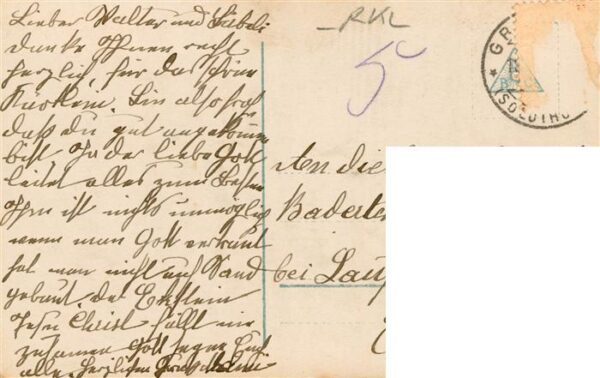 Lieber Walter und
danke Ihnen recht
herzlich, für das schöne
Bin also froh
daß du gut angekommen
bist, Ja der liebe Gott
leitet alles zum Besten
Ihm ist nichts unmöglich
wenn man Gott vertraut
hat man nicht auf Sand
gebaut, der Eckstein
Jesu Christ fällt nie
zusammen Gott segne Euch
alle, herzlichen Gruss
RKL
5
GR
SOLOTHU
An die
bei Lau